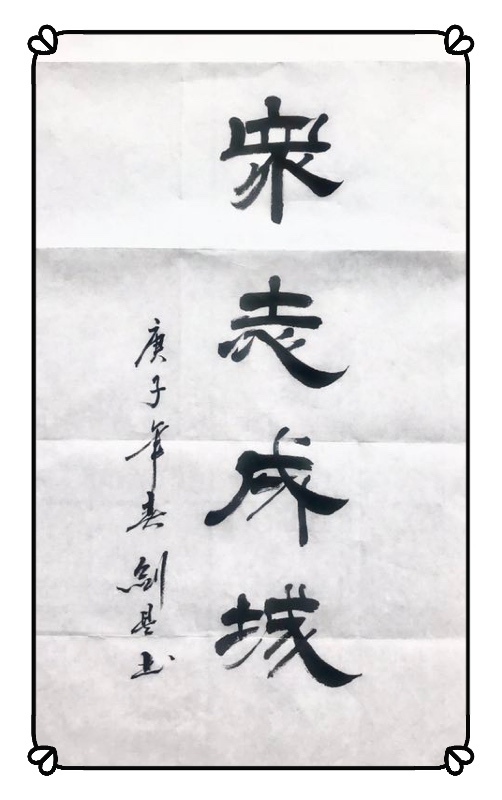 衆志成城
庚子年春劍星书